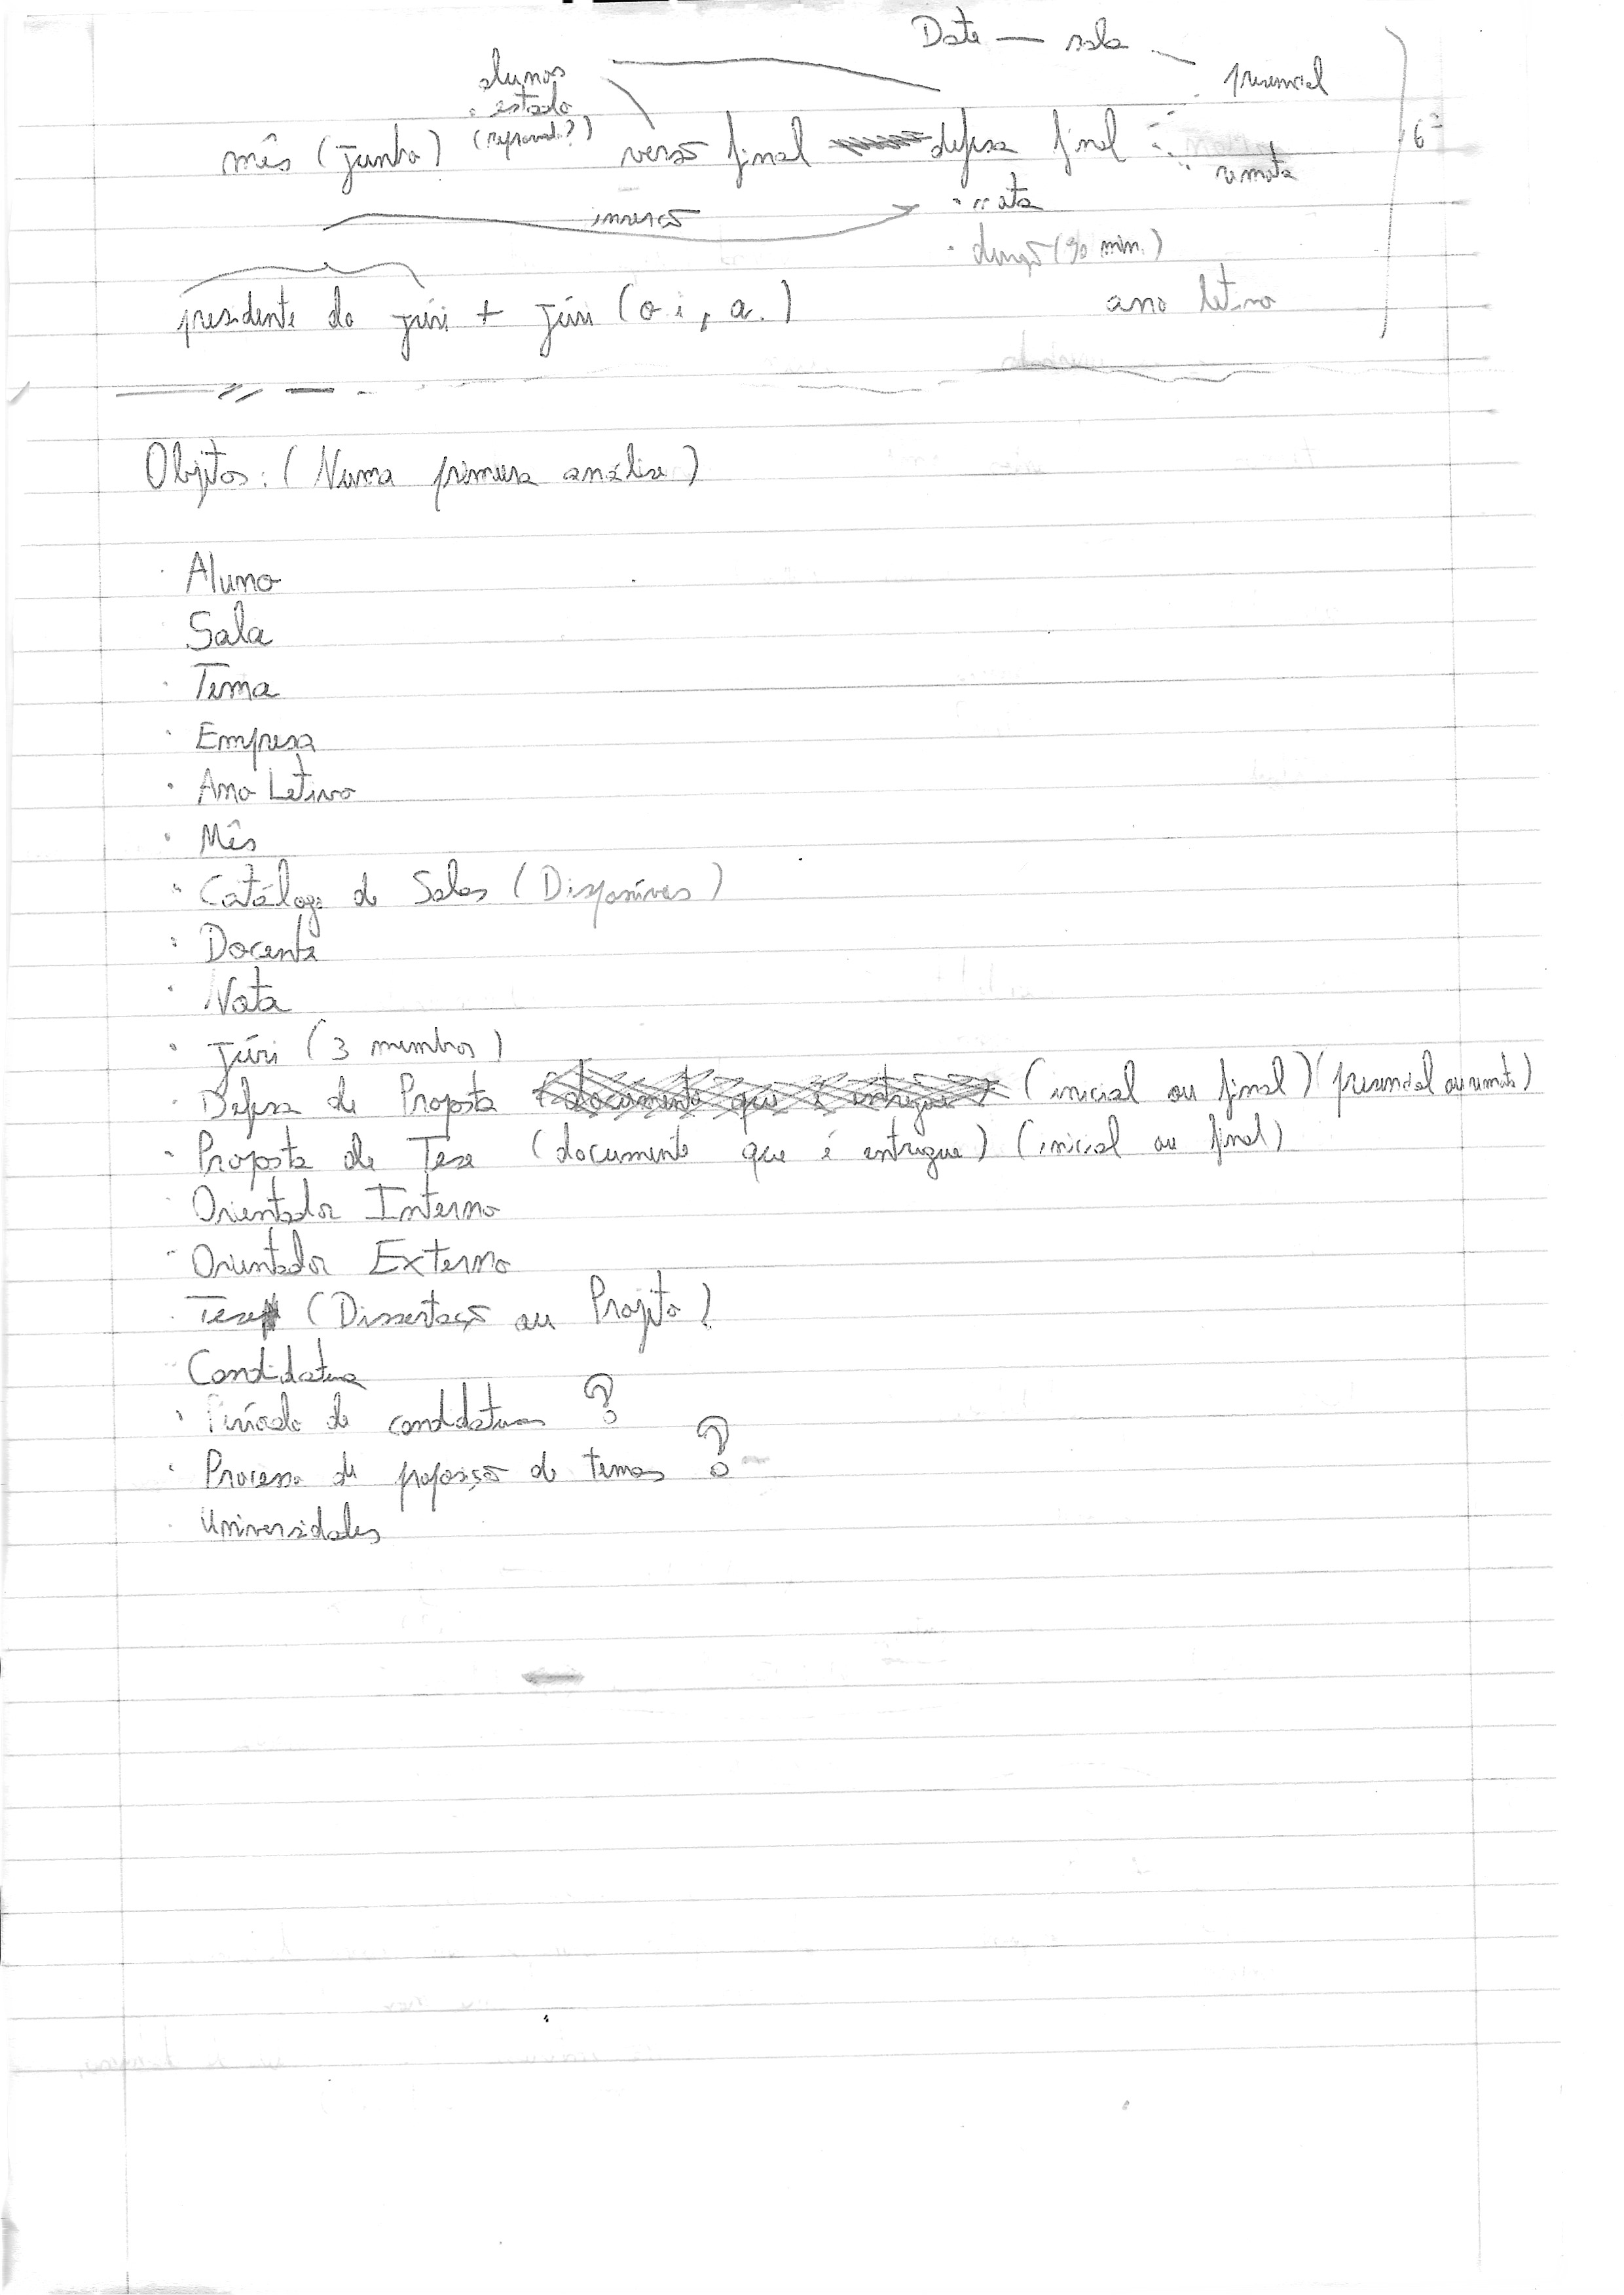 Date — sala
alunos
presencial
• estado
(reprovad.?)
mês (junho) versão final defesa final
6º
remota
inserção
• nota
• duração (90 min.)
presidente do júri + júri (o i, a.)
ano letivo
Objetos: (Numa primeira análise)
· Aluno
· Sala
· Tema
· Empresa
· Ano Letivo
· Mês
· Catálogo de Salas (Disponíveis)
· Docente
· Nota
· Júri (3 membros)
· Defesa de Proposta (documento que é entregue) (inicial ou final) (presencial ou remota)
· Proposta de Tese (documento que é entregue) (inicial ou final)
· Orientador Interno
· Orientador Externo
· Tese (Dissertação ou Projeto)
· Candidatura
· Período de candidaturas ?
· Processo de proposição de temas ?
· Universidades